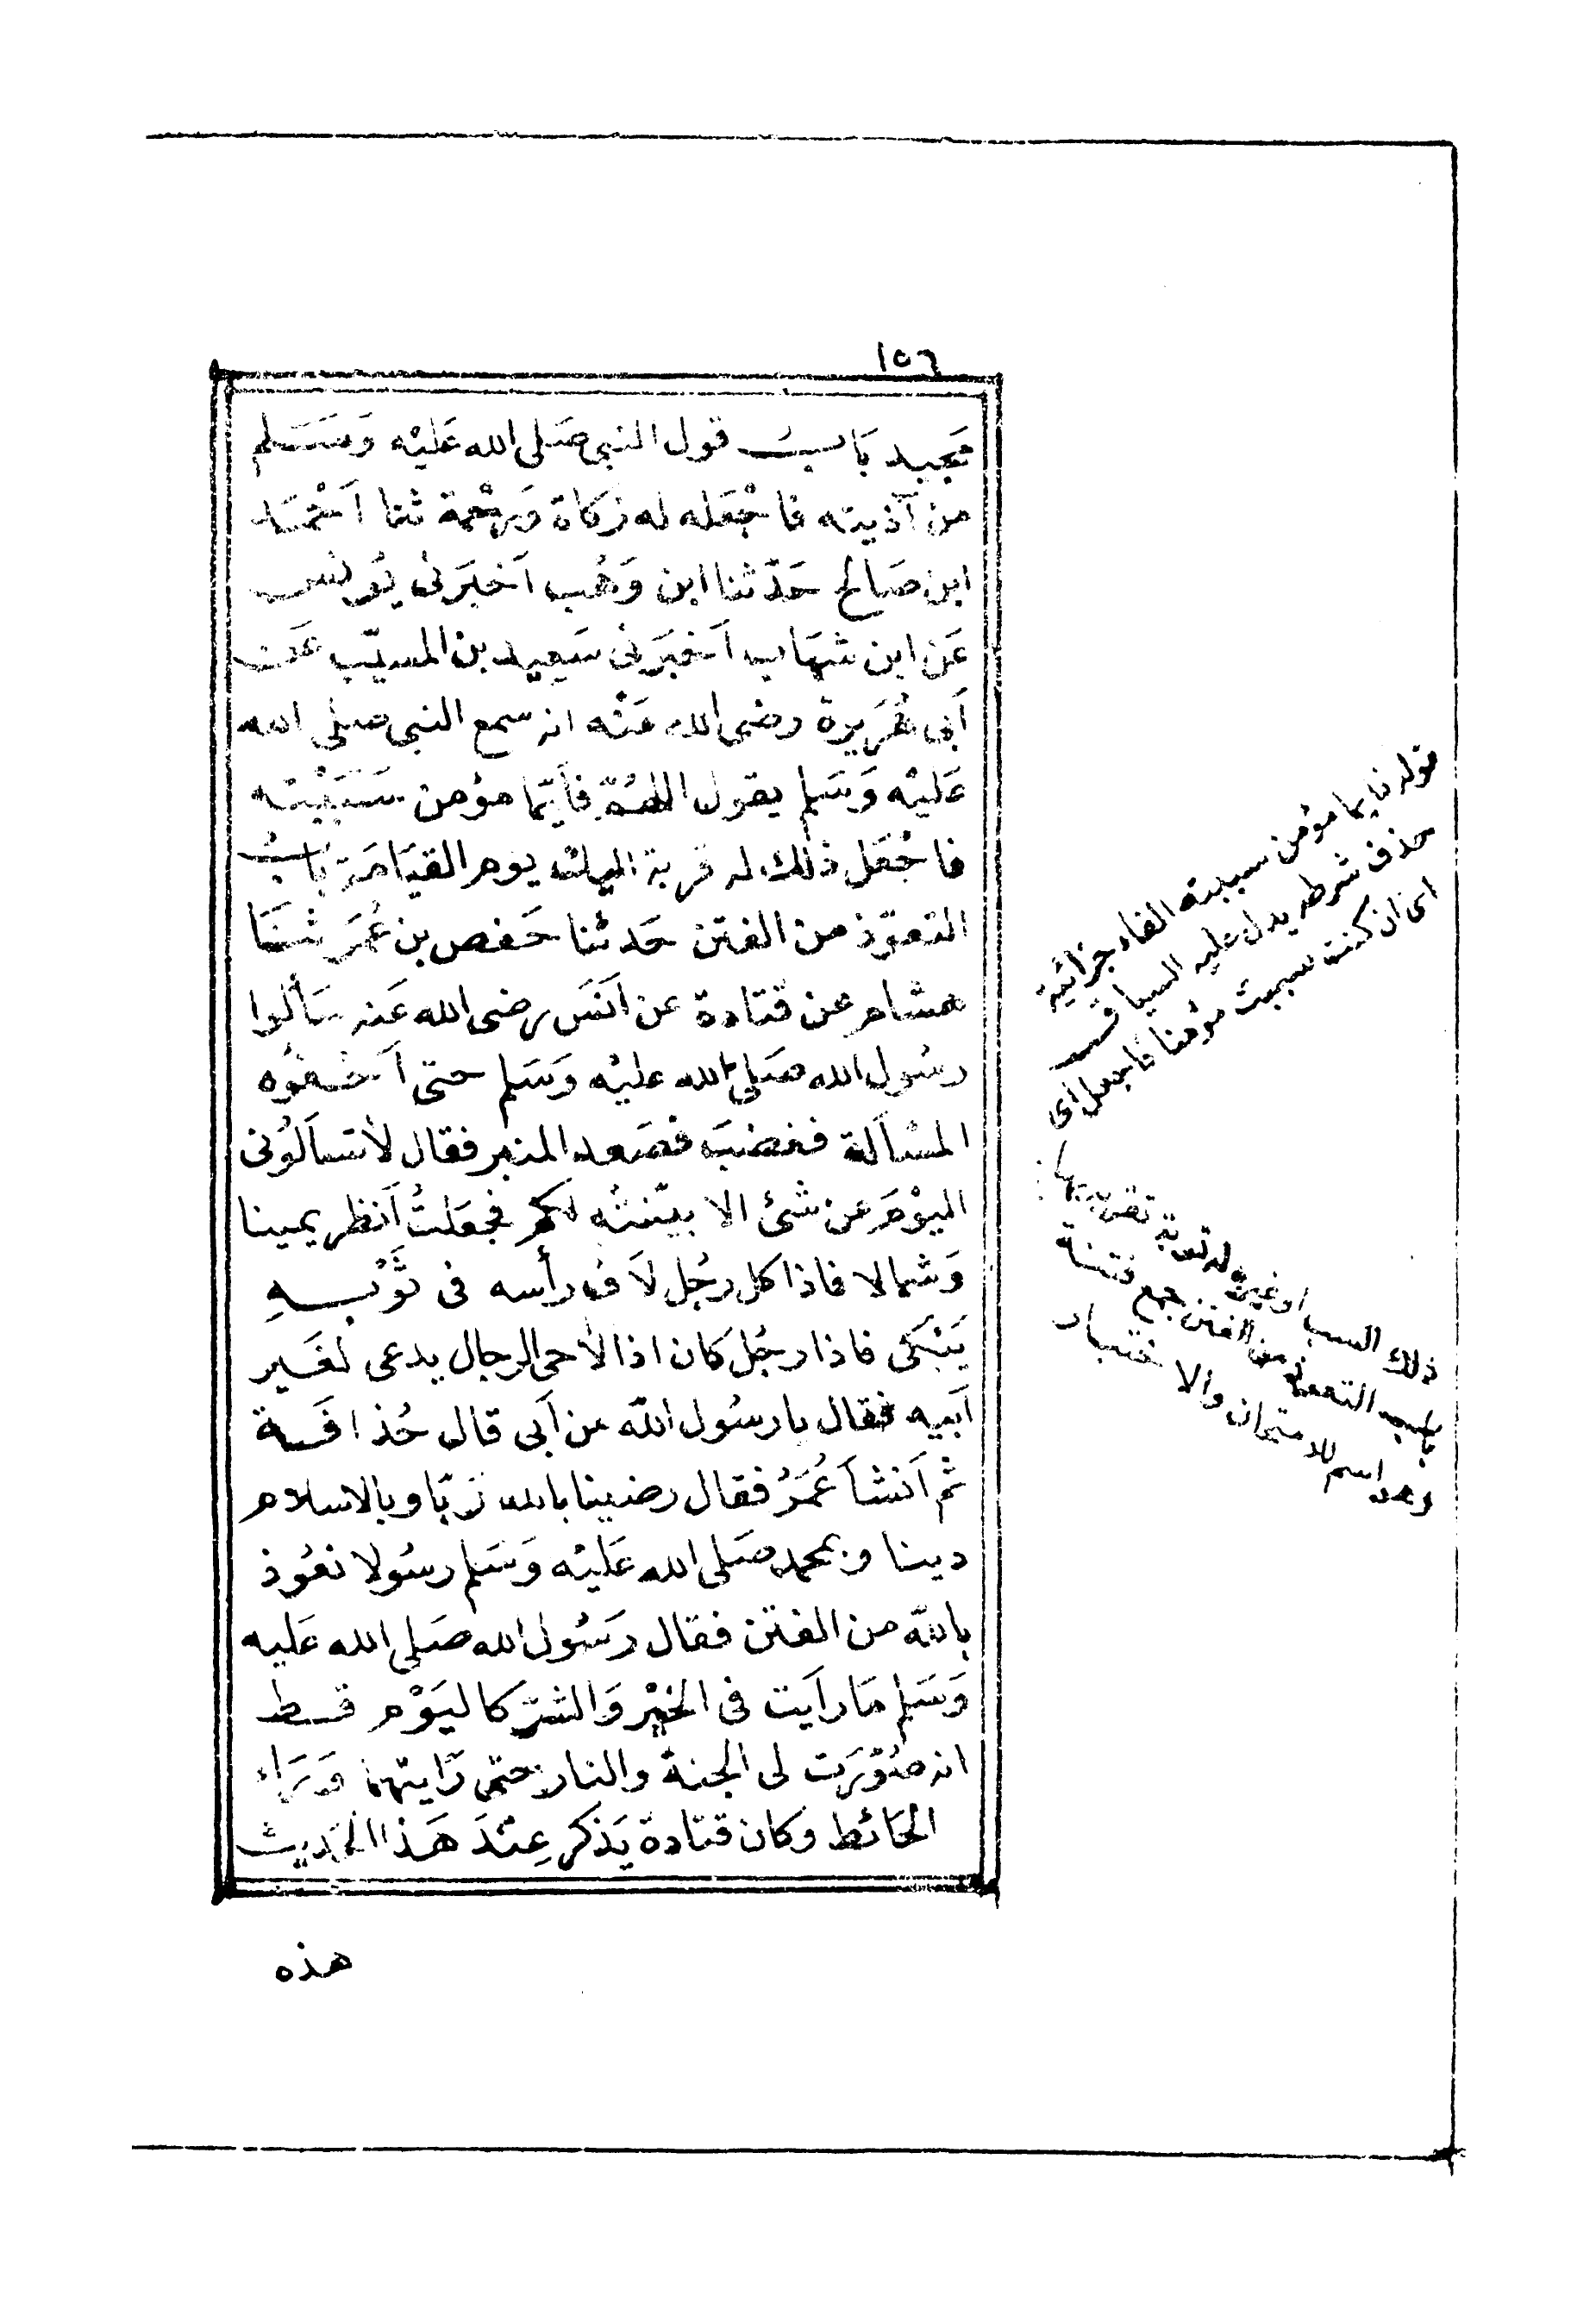 ١٥٦
مجيد بَابُ قول النبى صَلى الله عَليْه وَسَلم
من آذيته فاجْعَله له زكاة وَرحْمة ثنا اَحْمَد
ابن صَالح حَدّثنا ابن وَهْب اَخبَرَنى يُونس
عَن ابن شهَاب اَخبَرَنى سَعيد بن المسيّب عَن
اَبى هُرَيرة رضى الله عَنْه انه سمع النبى صلى الله
عَليْه وَسَلم يقول اللهُمّ فاَيّما مؤمن سَبَبْته
فاجْعَل ذلك له قربة اليك يوم القيَامَة بَابُ
التعوّذ من الفتن حَدثنا حَفص بن عُمَر ثنَا
هشام عن قتادة عن اَنَس رضى الله عَنه سَألوا
رسُول الله صَلى الله عليْه وَسَلم حتى اَحْفوْه
المسْاَلة فغضبَ فصَعد المنبر فقال لاتساَلُونى
اليوْمَ عن شئ الا بيّنتُه لكم فجعَلتُ اَنظر يمينا
وَشمالا فاذا كل رجُل لاَف رأسه فى ثَوْبِهِ
يَبْكى فاذا رجُل كان اذا لاحى الرجال يدعى لغَير
اَبيه فقال يارسُول الله من اَبى قال حُذافَة
ثم اَنشاَ عُمَرُ فقال رضينا بالله رَبّا وبالاسلام
دينا وبمحمد صَلى الله عَليْه وَسَلم رسُولا نعُوذ
بالله من الفتن فقال رَسُول الله صَلى الله عَليه
وَسَلم مَا رَاَيت فى الخيْر وَالشرّ كاليَوْم قط
انه صُوّرَت لى الجنة والنار حتى رَايتهما وَرَاء
الحَائط وكان قتادة يَذكر عِنْدَ هَذا الحَديث
هذه
قوله فايما مؤمن سببته الفاء جزائية
حذف شرطه يدل عليه السياق
اى ان كنت سببت مؤمنا فاجعل اى
ذلك السب اوغيره له قربة تقربه بها
باب التعوذ من الفتن جمع فتنة
وهو اسم للامتحان والاختبار